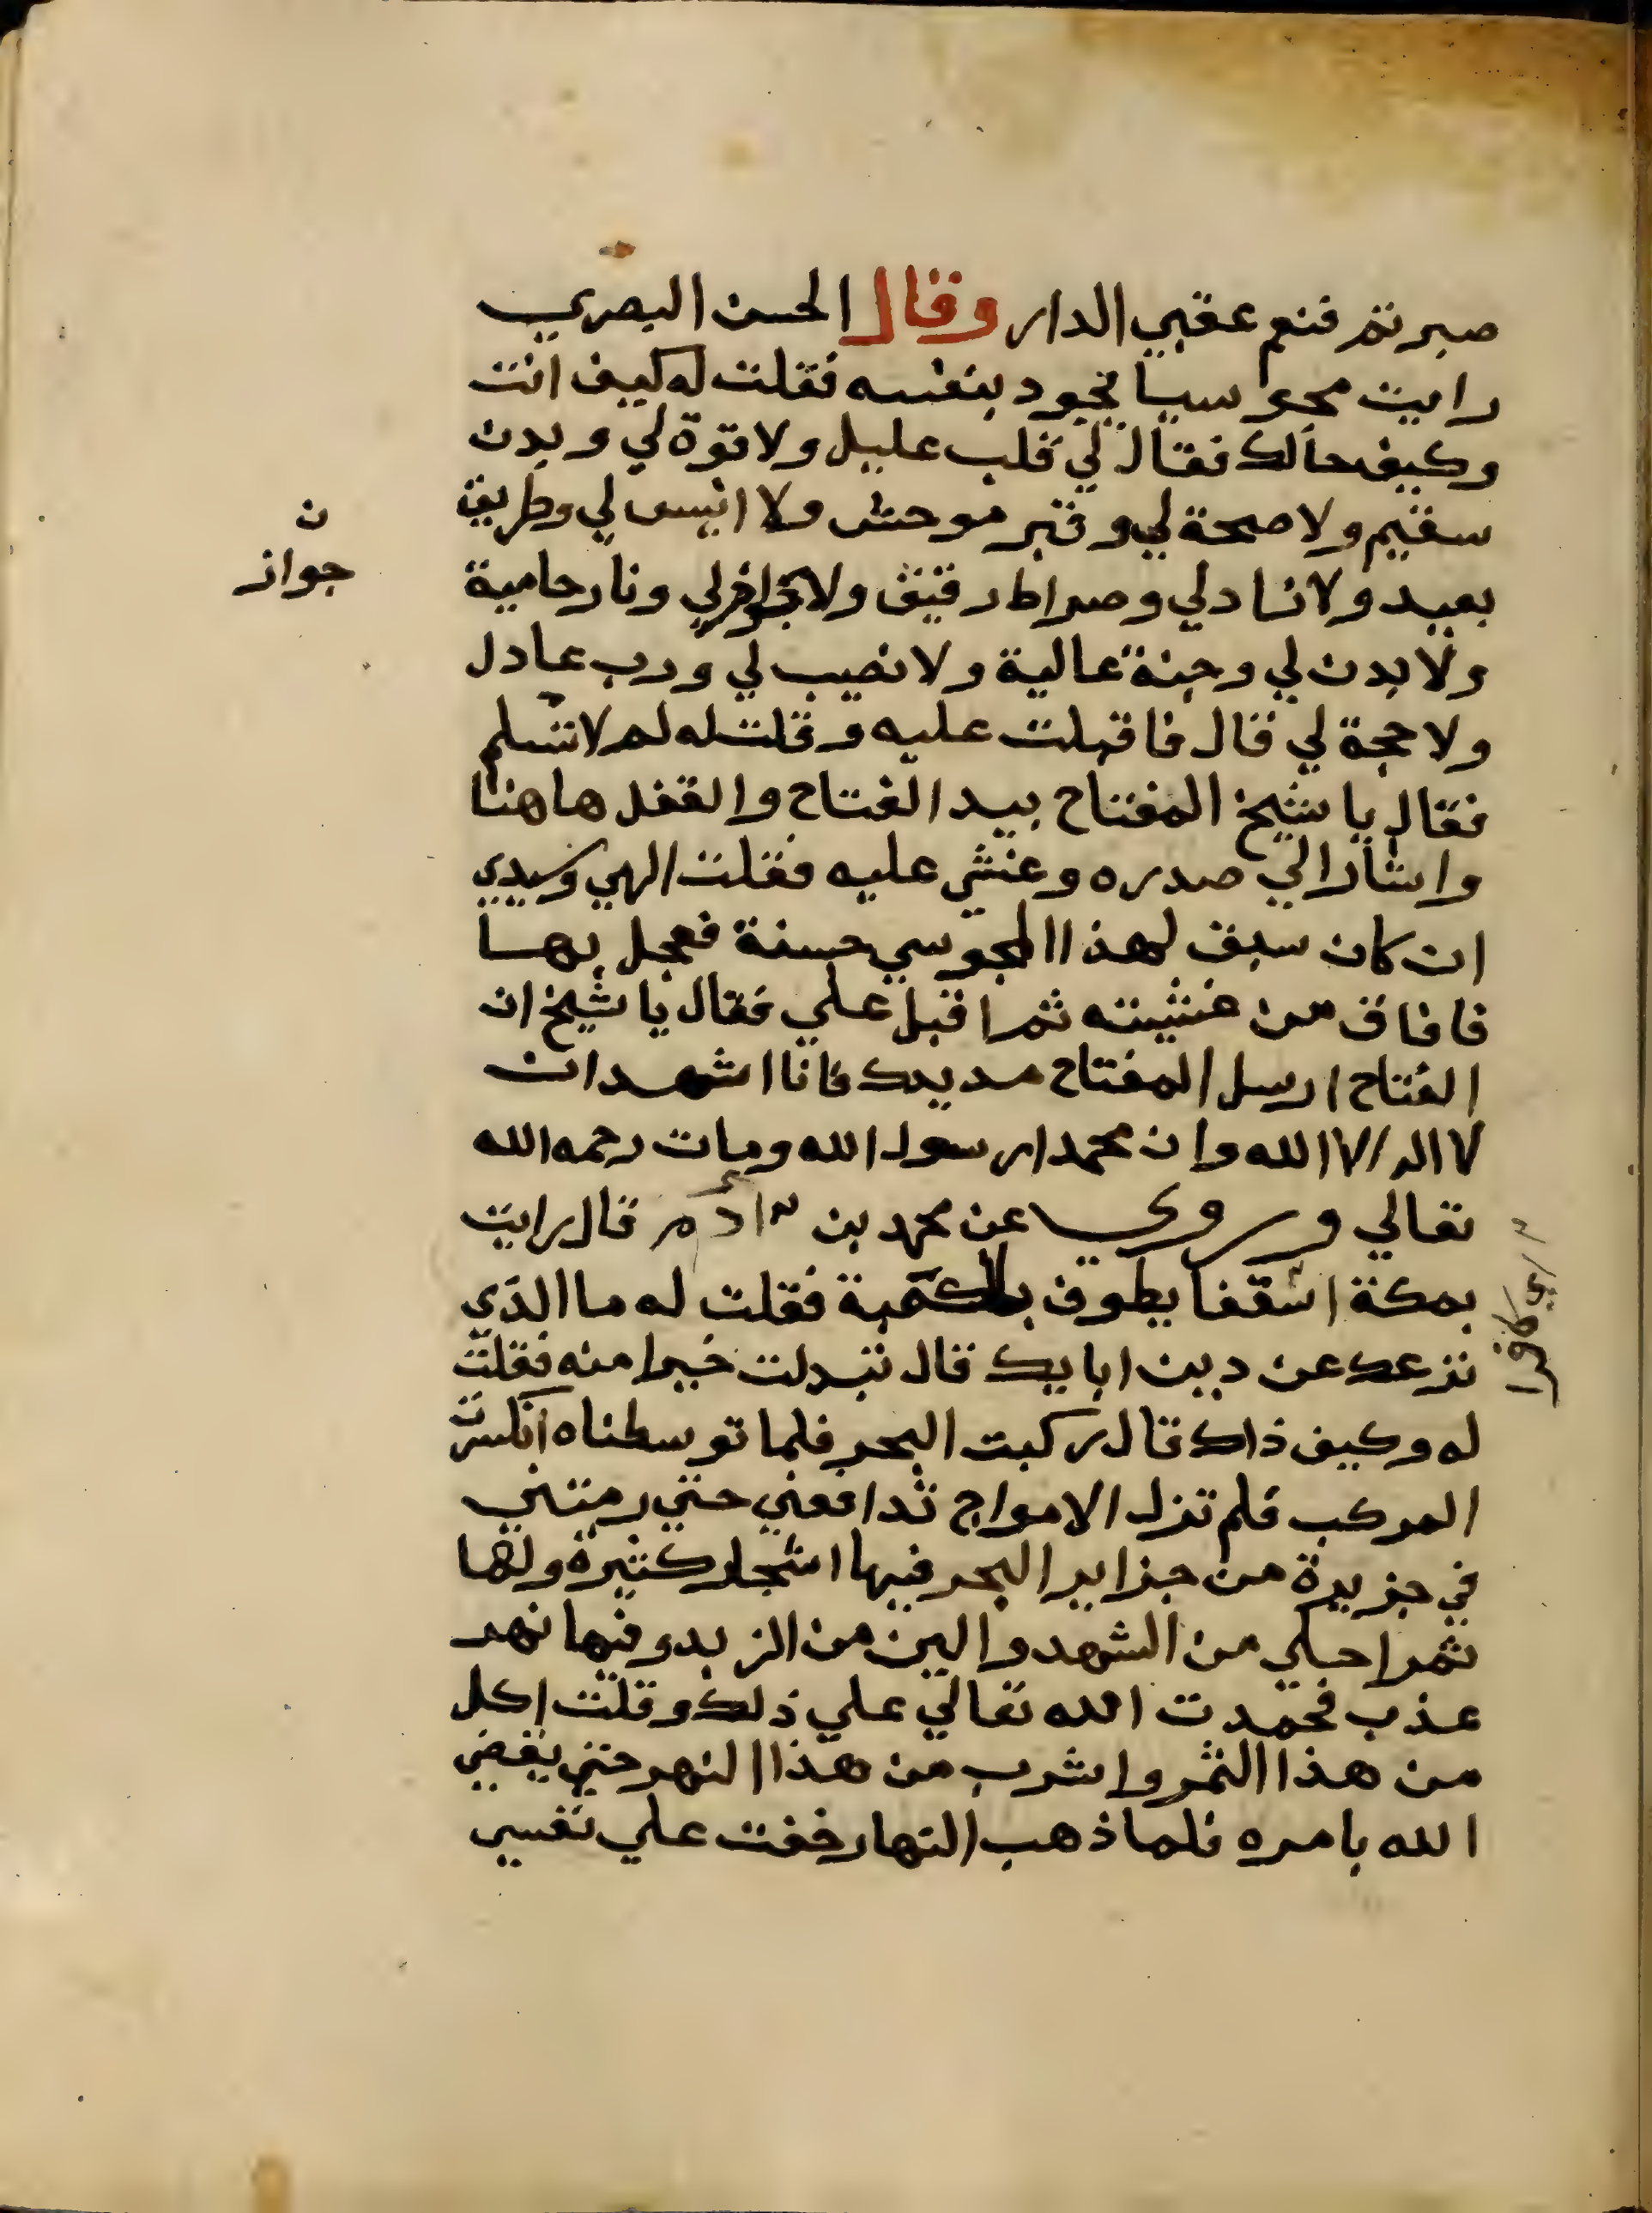 صبرتم فنعم عقبي الدار وقال الحسن البصري
رايت مجوسيا يجود بنفسه فقلت له كيف انت
وكيف حالك فقال لي قلب عليل ولا قوة لي وبدن
سقيم ولا صحة لي وقبر موحش ولا انيس لي وطريق
بعيد ولا زاد لي وصراط رقيق ولا جواز لي ونار حامية
ن
جواز
ولا بدن لي وجنة عالية ولا نصيب لي ورب عادل
ولا حجة لي قال فاقبلت عليه وقلت له لم لا تسلم
فقال يا شيخ المفتاح بيد الفتاح والقفل هاهنا
واشار الي صدره وغشي عليه فقلت الهي وسيدي
ان كان سبق لهذا المجوسي حسنة فعجل بها
فافاق من غشيته ثم اقبل علي فقال يا شيخ ان
الفتاح ارسل المفتاح مد يدك فانا اشهد ان
لا اله الا الله وان محمدا رسول الله ومات رحمه الله
تعالي وروي عن محمد بن ادم قال رايت
بمكة اسقفا يطوف بالكعبة فقلت له ما الذي
نزعك عن دين ابايك قال تبدلت خيرا منه فقلت
له وكيف ذاك قال ركبت البحر فلما توسطناه انكسرت
المركب فلم تزل الامواج تدافعني حتي رمتني
في جزيرة من جزاير البحر فيها اشجار كثيرة ولها
ثمر احلي من الشهد والين من الزبد وفيها نهر
عذب فحمدت الله تعالي علي ذلك وقلت اكل
من هذا الثمر واشرب من هذا النهر حتي يقضي
الله بامره فلما ذهب النهار خفت علي نفسي